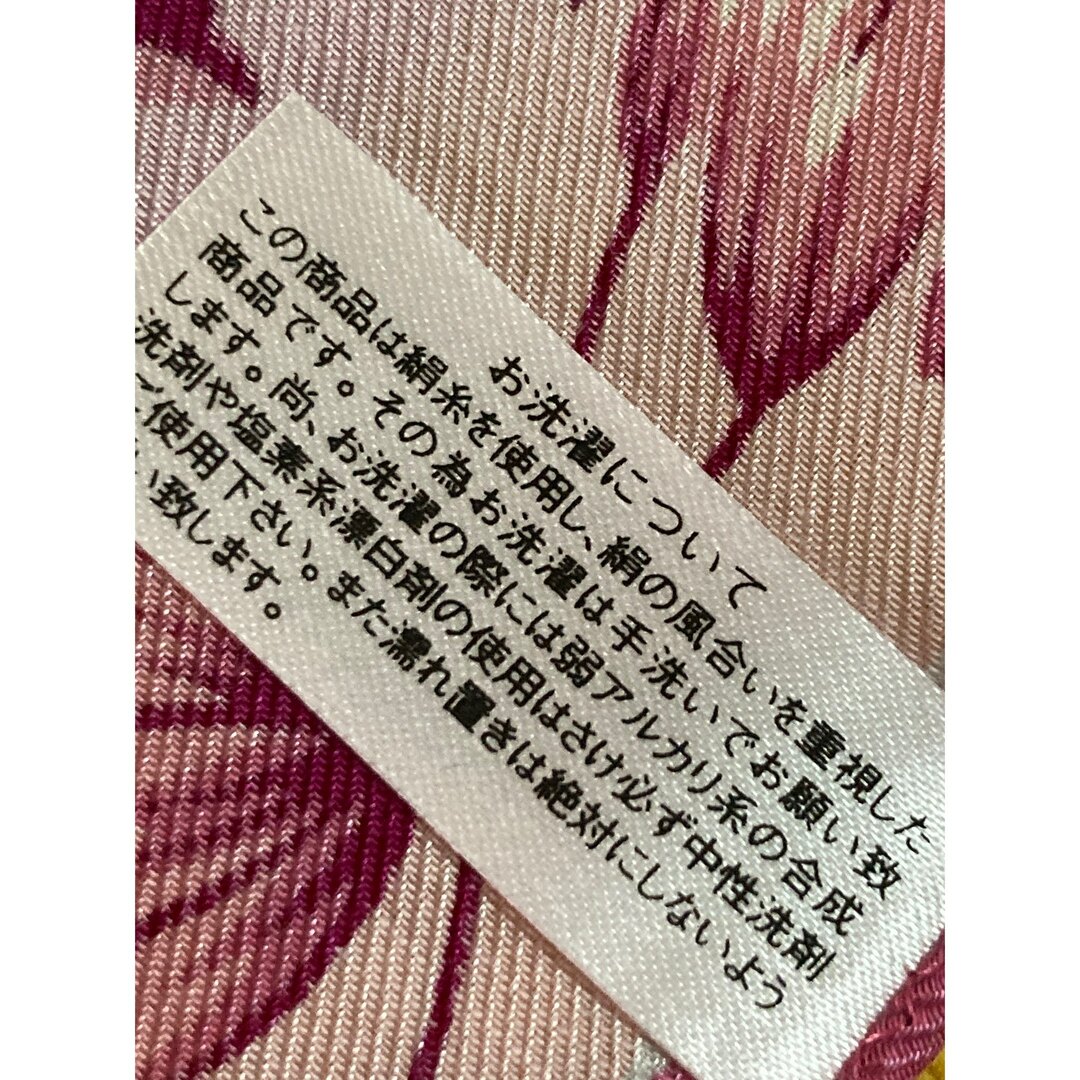 お洗濯について
この商品は絹糸を使用し、絹の風合いを重視した
商品です。その為お洗濯は手洗いでお願い致
します。尚、お洗濯の際には弱アルカリ系の合成
洗剤や塩素系漂白剤の使用はさけ必ず中性洗剤
ご使用下さい。また濡れ置きは絶対にしないよう
い致します。